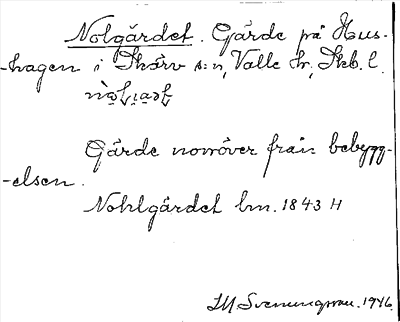 Nolgärdet. Gärde på Hus-
-hagen i Skärv s:n, Valle hr, Skb. l.

Gärde norröver från bebygg-
-elsen.
Nohlgärdet lm. 1843 H
I M Svenungsson. 1946.